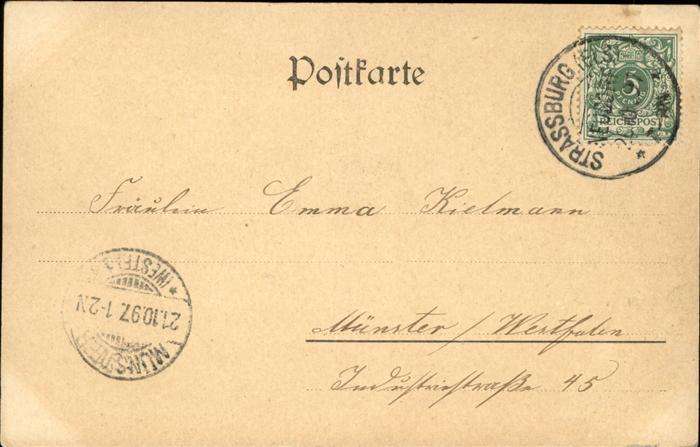 Postkarte
5
REICHSPOST
STRASSBURG
Fräulein Emma Kielmann
(WESTF.)
21.10.97. 1-2N
MÜNSTER
Münster / Westfalen
Industriestraße 45